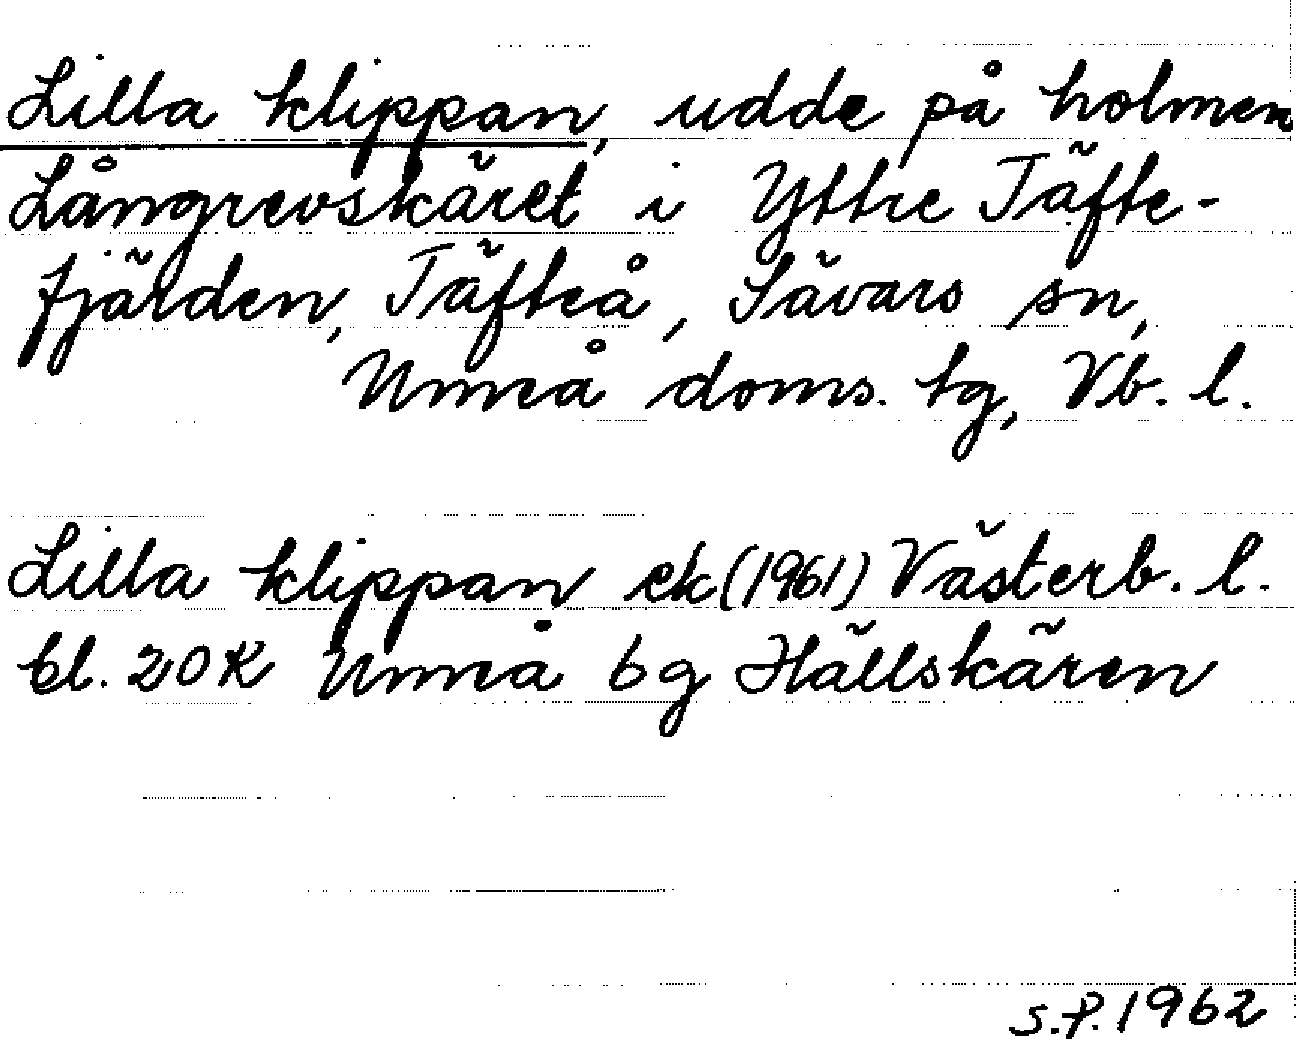 Lilla klippan, udde på holmen
Långrevskäret i Yttre Täfte-
fjärden, Täfteå, Sävars sn,
Umeå doms. tg, Vb. l.
Lilla klippan ek (1961) Västerb. l.
bl. 20 K Umeå 6 g Hällskären
S.P. 1962